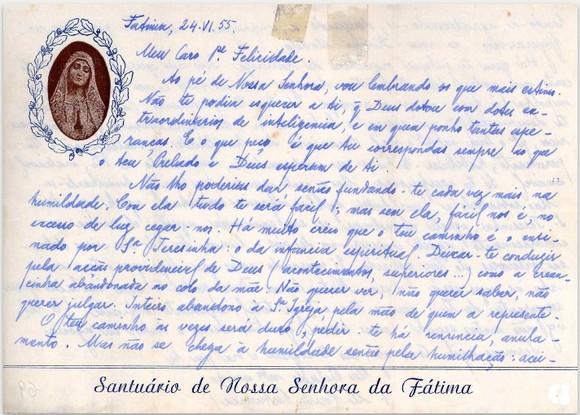 Fátima, 24.VI.55.
Meu Caro Pe. Felicidade.
Ao pé de Nossa Senhora, vou lembrando os que mais estimo.
Não te podia esquecer a ti, q Deus dotou com dotes ex-
traordinários de inteligencia, e em quem ponho tantas espe-
ranças. E o que peço é que tu correspondas sempre ao que
o teu Prelado e Deus esperam de ti.
Não lho poderias dar senão fundando-te cada vez mais na
humildade. Com ela tudo te será fácil; mas sem ela, fácil nos é, no
excesso de luz cegar-nos. Há muito creio que o teu caminho é o ensi-
nado por Sta Teresinha: o da infancia espiritual. Deixar-te conduzir
pela acção providencial de Deus (acontecimentos, superiores...) como a crean-
cinha abandonada no colo da mãe. Não querer ver, não querer saber, não
querer julgar. Inteiro abandono à Sta Igreja pela mão de quem a representa.
O teu caminho às vezes será duro, pedir-te-há renuncia, anula-
mento. Mas não se chega à humildade senão pela humilhação: acei-
Santuário de Nossa Senhora da Fátima